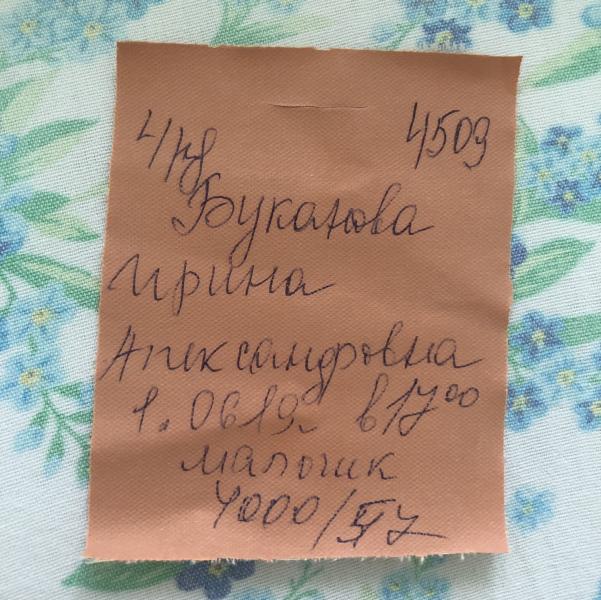 4509
Букатова
Ирина
Александровна
1.0619г. в 17⁰⁰
мальчик
4000/57